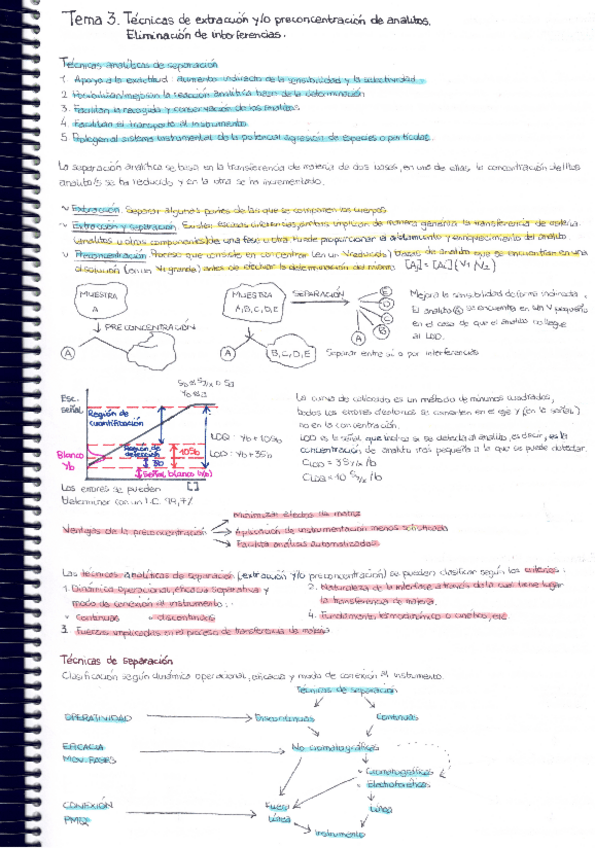 Tema 3. Técnicas de extracción y/o preconcentración de analitos.
Eliminación de interferencias.
Técnicas analíticas de separación
1. Apoyo a la exactitud: Aumento indirecto de la sensibilidad y la selectividad.
2. Posibilitan/mejoran la reacción analítica base de la determinación
3. Facilitan la recogida y conservación de los analitos.
4. Facilitan el transporte al instrumento.
5. Protegen al sistema instrumental de la potencial agresión de especies o partículas.
La separación analítica se basa en la transferencia de materia de dos fases, en una de ellas, la concentración del/los
analito/s se ha reducido y en la otra se ha incrementado.
Extracción. Separar algunas partes de las que se componen los cuerpos
Extracción y separación. Existen técnicas implican de manera genérica la transferencia de materia
(analitos u otros componentes) de una fase u otra. Puede proporcionar el aislamiento y enriquecimiento del analito
Preconcentración. Proceso que consiste en concentrar (en un V reducido) trazas de analito que se encuentran en una
disolución (en un V grande) antes de efectuar la determinación del mismo. [A]
MUESTRA
A
PRECONCENTRACIÓN
A
MUESTRA
A, B, C, D, E
SEPARACIÓN
A
B, C, D, E
E
D
C
B
A
Separar entre sí o por interferencias
Mejora la sensibilidad de forma indirecta.
El analito A se encuentra en un V pequeño
en el caso de que el analito no llegue
al LOD.
Esc.
señal
Región de
cuantificación
Región de
detección
Blanco
Yb
10Sb
3Sb
Señal blanco (Yb)
LOQ: Yb + 10Sb
LOD: Yb + 3Sb
[ ]
Los errores se pueden
determinar con un I.C. 99,7%
La curva de calibrado es un método de mínimos cuadrados,
todos los errores aleatorios se convierten en el eje y (en la señal)
no en la concentración.
LOD es la señal que indica si se detecta el analito, es decir, es la
concentración de analito más pequeña a la que se puede detectar.
CLOD = 3 Sy/x /b
CLOQ = 10 Sy/x /b
Ventajas de la preconcentración
Minimizar efectos de matriz
Aplicación de instrumentación menos sofisticada
Facilita análisis automatizados
Las técnicas analíticas de separación (extracción y/o preconcentración) se pueden clasificar según los criterios:
1. Dinámica operacional, eficacia separativa y
modo de conexión al instrumento:
Continuas
discontinuas
2. Naturaleza de la interface a través de la cual tiene lugar
la transferencia de materia.
3. Fuerzas implicadas en el proceso de transferencia de masas
4. Fundamento termodinámico o cinético, etc
Técnicas de separación
Clasificación según dinámica operacional, eficacia y modo de conexión al instrumento.
Técnicas de separación
OPERATIVIDAD
Discontinuas
Continuas
EFICACIA
MOV. FASES
No cromatográficas
Cromatográficas
Electroforéticas
CONEXIÓN
Fuera
línea
Línea
Instrumento